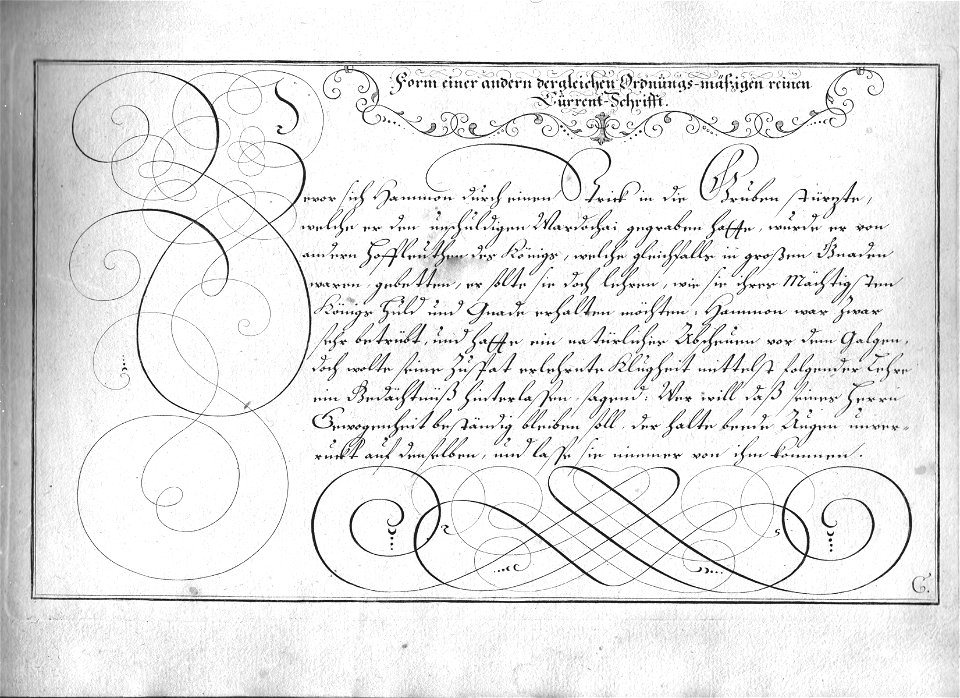 Form einer andern dergleichen Ordnungs-mäßigen reinen
Current-Schrifft.
Bevor sich Hammon durch einen Strick in die Gruben stürzte,
welche er den unschuldigen Mardochai gegraben hatte, wurde er von
andern Hoffleuthen des Königs, welche gleichfalls in großen Gnaden
waren, gebetten, er solte sie doch lehren, wie sie ihres Mächtigsten
Königs Huld und Gnade erhalten möchten. Hammon war zwar
sehr betrübt, und hatte ein natürliches Abscheuen vor dem Galgen,
doch wolte seine zu spat erlehrnte Klugheit mittelst folgender Lehre
ein Gedächtnüß hinterlassen, sagend: Wer will daß seines Herrn
Gewogenheit beständig bleiben soll, der halte beede Augen unver-
ruckt auf denselben, und lasse sie nimmer von ihm kommen.
G.